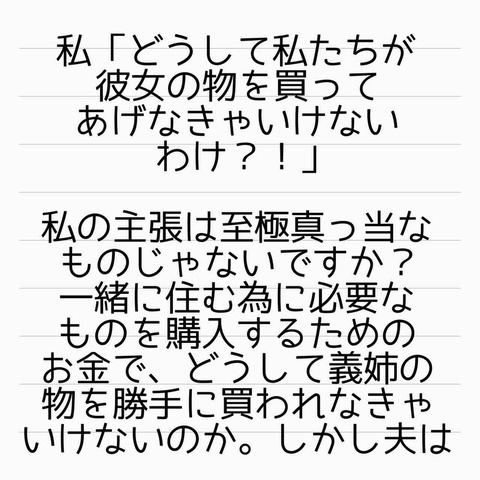 私「どうして私たちが
彼女の物を買って
あげなきゃいけない
わけ？！」
私の主張は至極真っ当な
ものじゃないですか？
一緒に住む為に必要な
ものを購入するための
お金で、どうして義姉の
物を勝手に買われなきゃ
いけないのか。しかし夫は